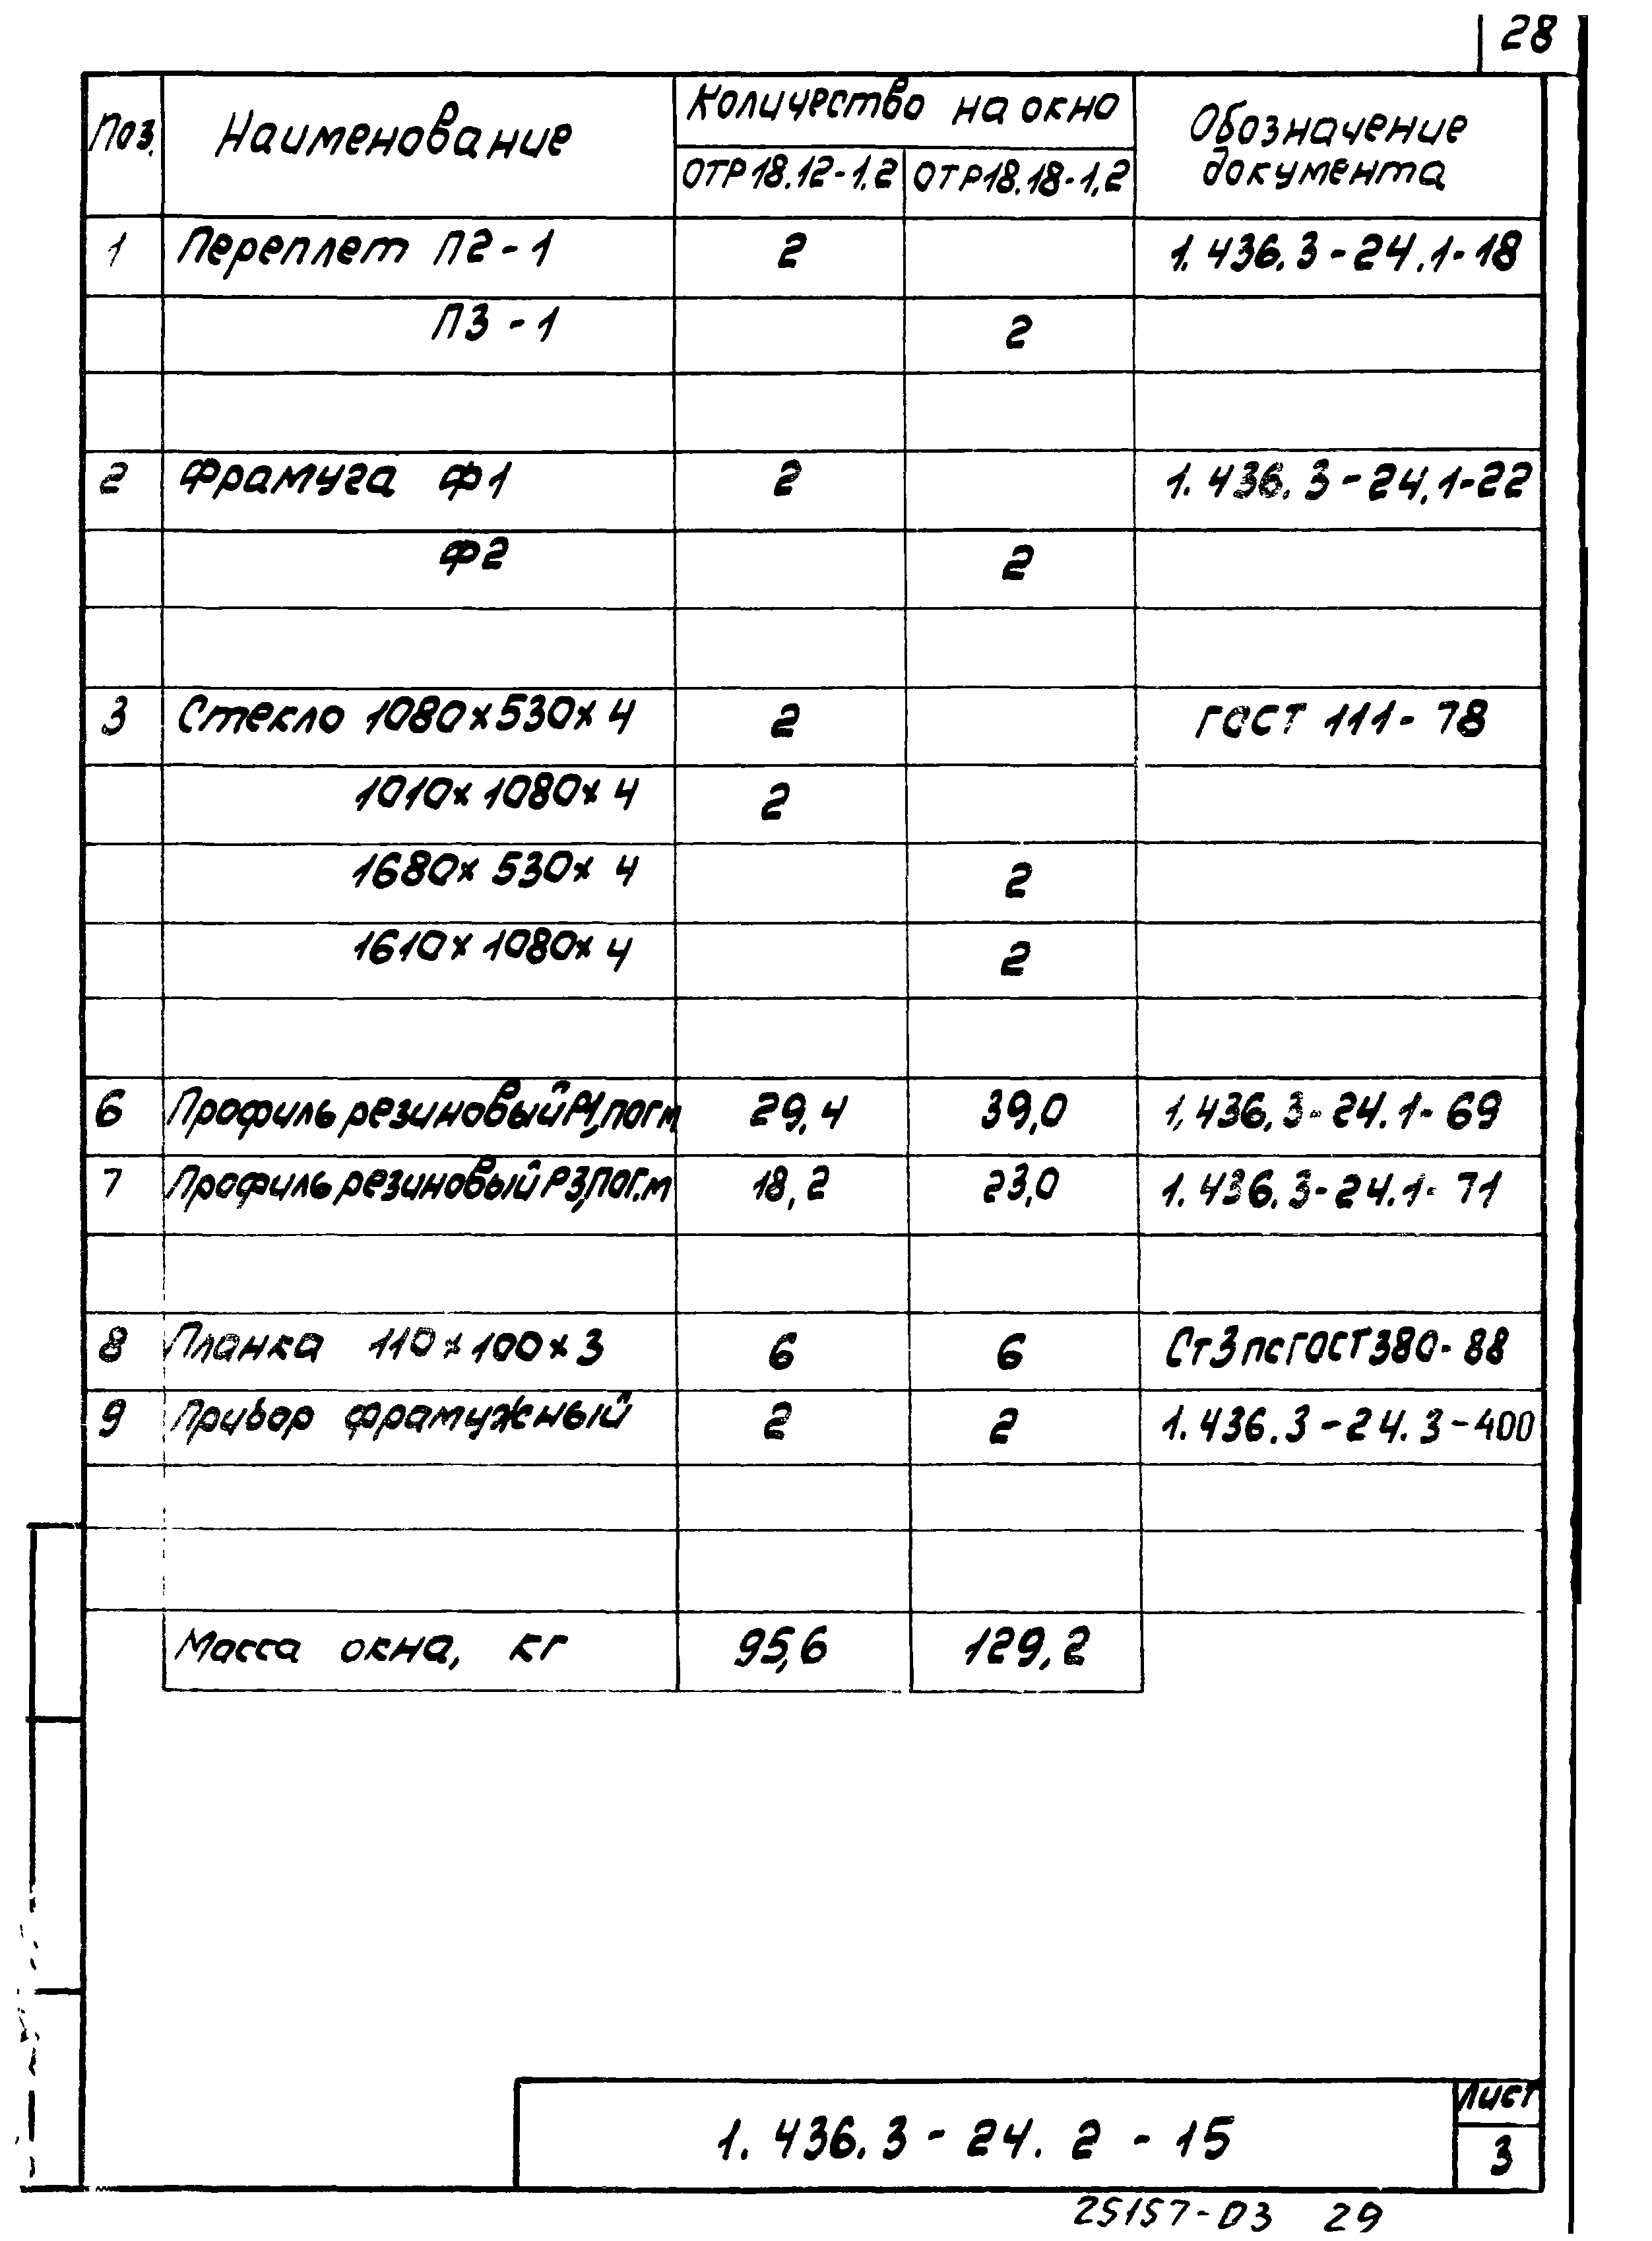 28
Поз. Наименование Количество на окно Обозначение документа
ОТР18.12-1.2 ОТР18.18-1,2
1 Переплет П2-1 2 1.436.3-24.1-18
П3-1 2
2 Фрамуга Ф1 2 1.436.3-24.1-22
Ф2 2
3 Стекло 1080х530х4 2 ГОСТ 111-78
1010х1080х4 2
1680х530х4 2
1610х1080х4 2
6 Профиль резиновый Р1,пог.м 29,4 39,0 1.436.3-24.1-69
7 Профиль резиновый Р3,пог.м 18,2 23,0 1.436.3-24.1-71
8 Планка 110х100х3 6 6 Ст3псГОСТ380-88
9 Прибор фрамужный 2 2 1.436.3-24.3-400
Масса окна, кг 95,6 129,2
1.436.3-24.2-15
Лист
3
25157-03 29